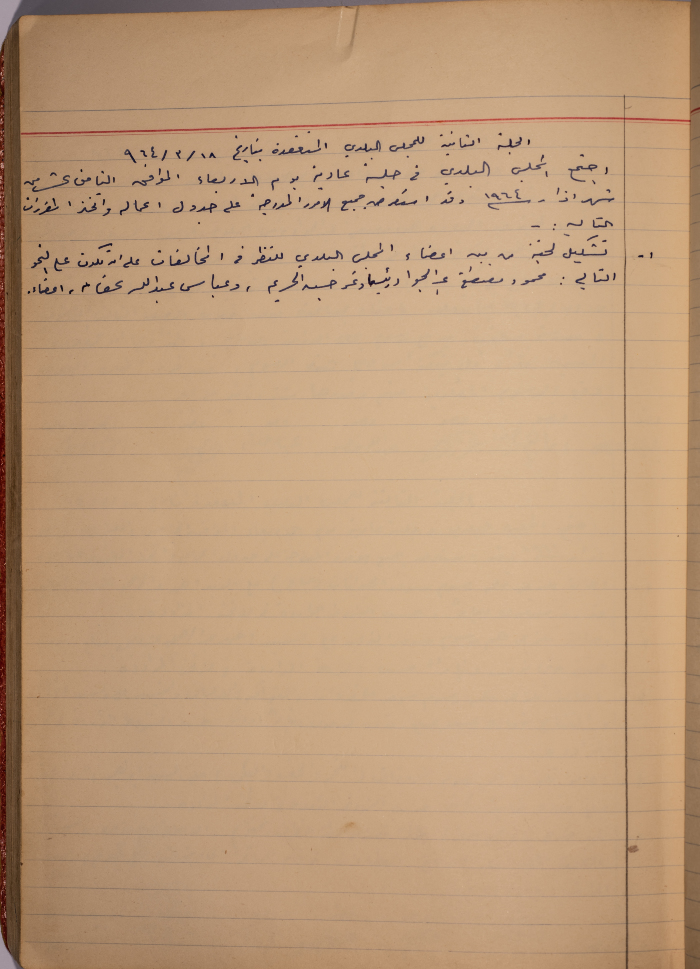 الجلسة الثانية للمجلس البلدي المنعقدة بتاريخ ١٨/٣/٩٦٤
اجتمع المجلس البلدي في جلسة عادية يوم الاربعاء الموافق الثامن عشر من
شهر اذار سنة ١٩٦٤ وقد استعرض جميع الامور المدرجة على جدول اعماله واتخذ المقررات
التالية : -
١- تشكيل لجنة من بين اعضاء المجلس البلدي للنظر في المخالفات على ان تكون على النحو
التالي : محمود مصطفى عبد الجواد رئيسا و حسين الحريم ، وعباس عبدالله ، اعضاء .